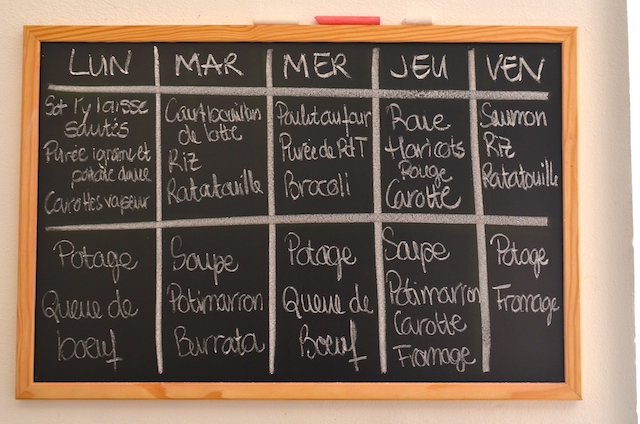 LUN MAR MER JEU VEN
Sot l'y laisse
sautés
Purée igname et
patate douce
Carottes vapeur
Court bouillon
de lotte
Riz
Ratatouille
Poulet au four
Purée de PdT
Brocoli
Raie
Haricots
Rouge
Carotte
Saumon
Riz
Ratatouille
Potage
Queue de
boeuf
Soupe
Potimarron
Burrata
Potage
Queue de
Boeuf
Soupe
Potimarron
Carotte
Fromage
Potage
Fromage